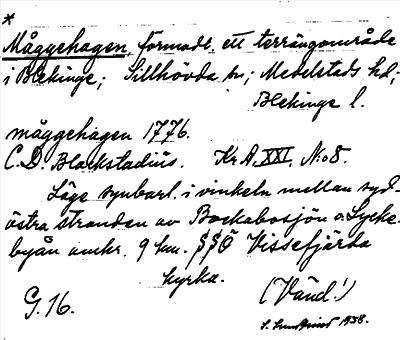 *
Måggehagen, förmodl. ett terrängområde
i Blekinge; Sillhövda sn; Medelstads hd;
Blekinge l.
måggehagen 1776.
C. D. Blackstadius. Kr. A. XXI. No 8.
Läge synbarl. i vinkeln mellan syd-
östra stranden av Bockabosjön o. Lycke-
byån omkr. 9 km. SSÖ Vissefjärda
kyrka.
G. 16. (Vänd!)
1938.